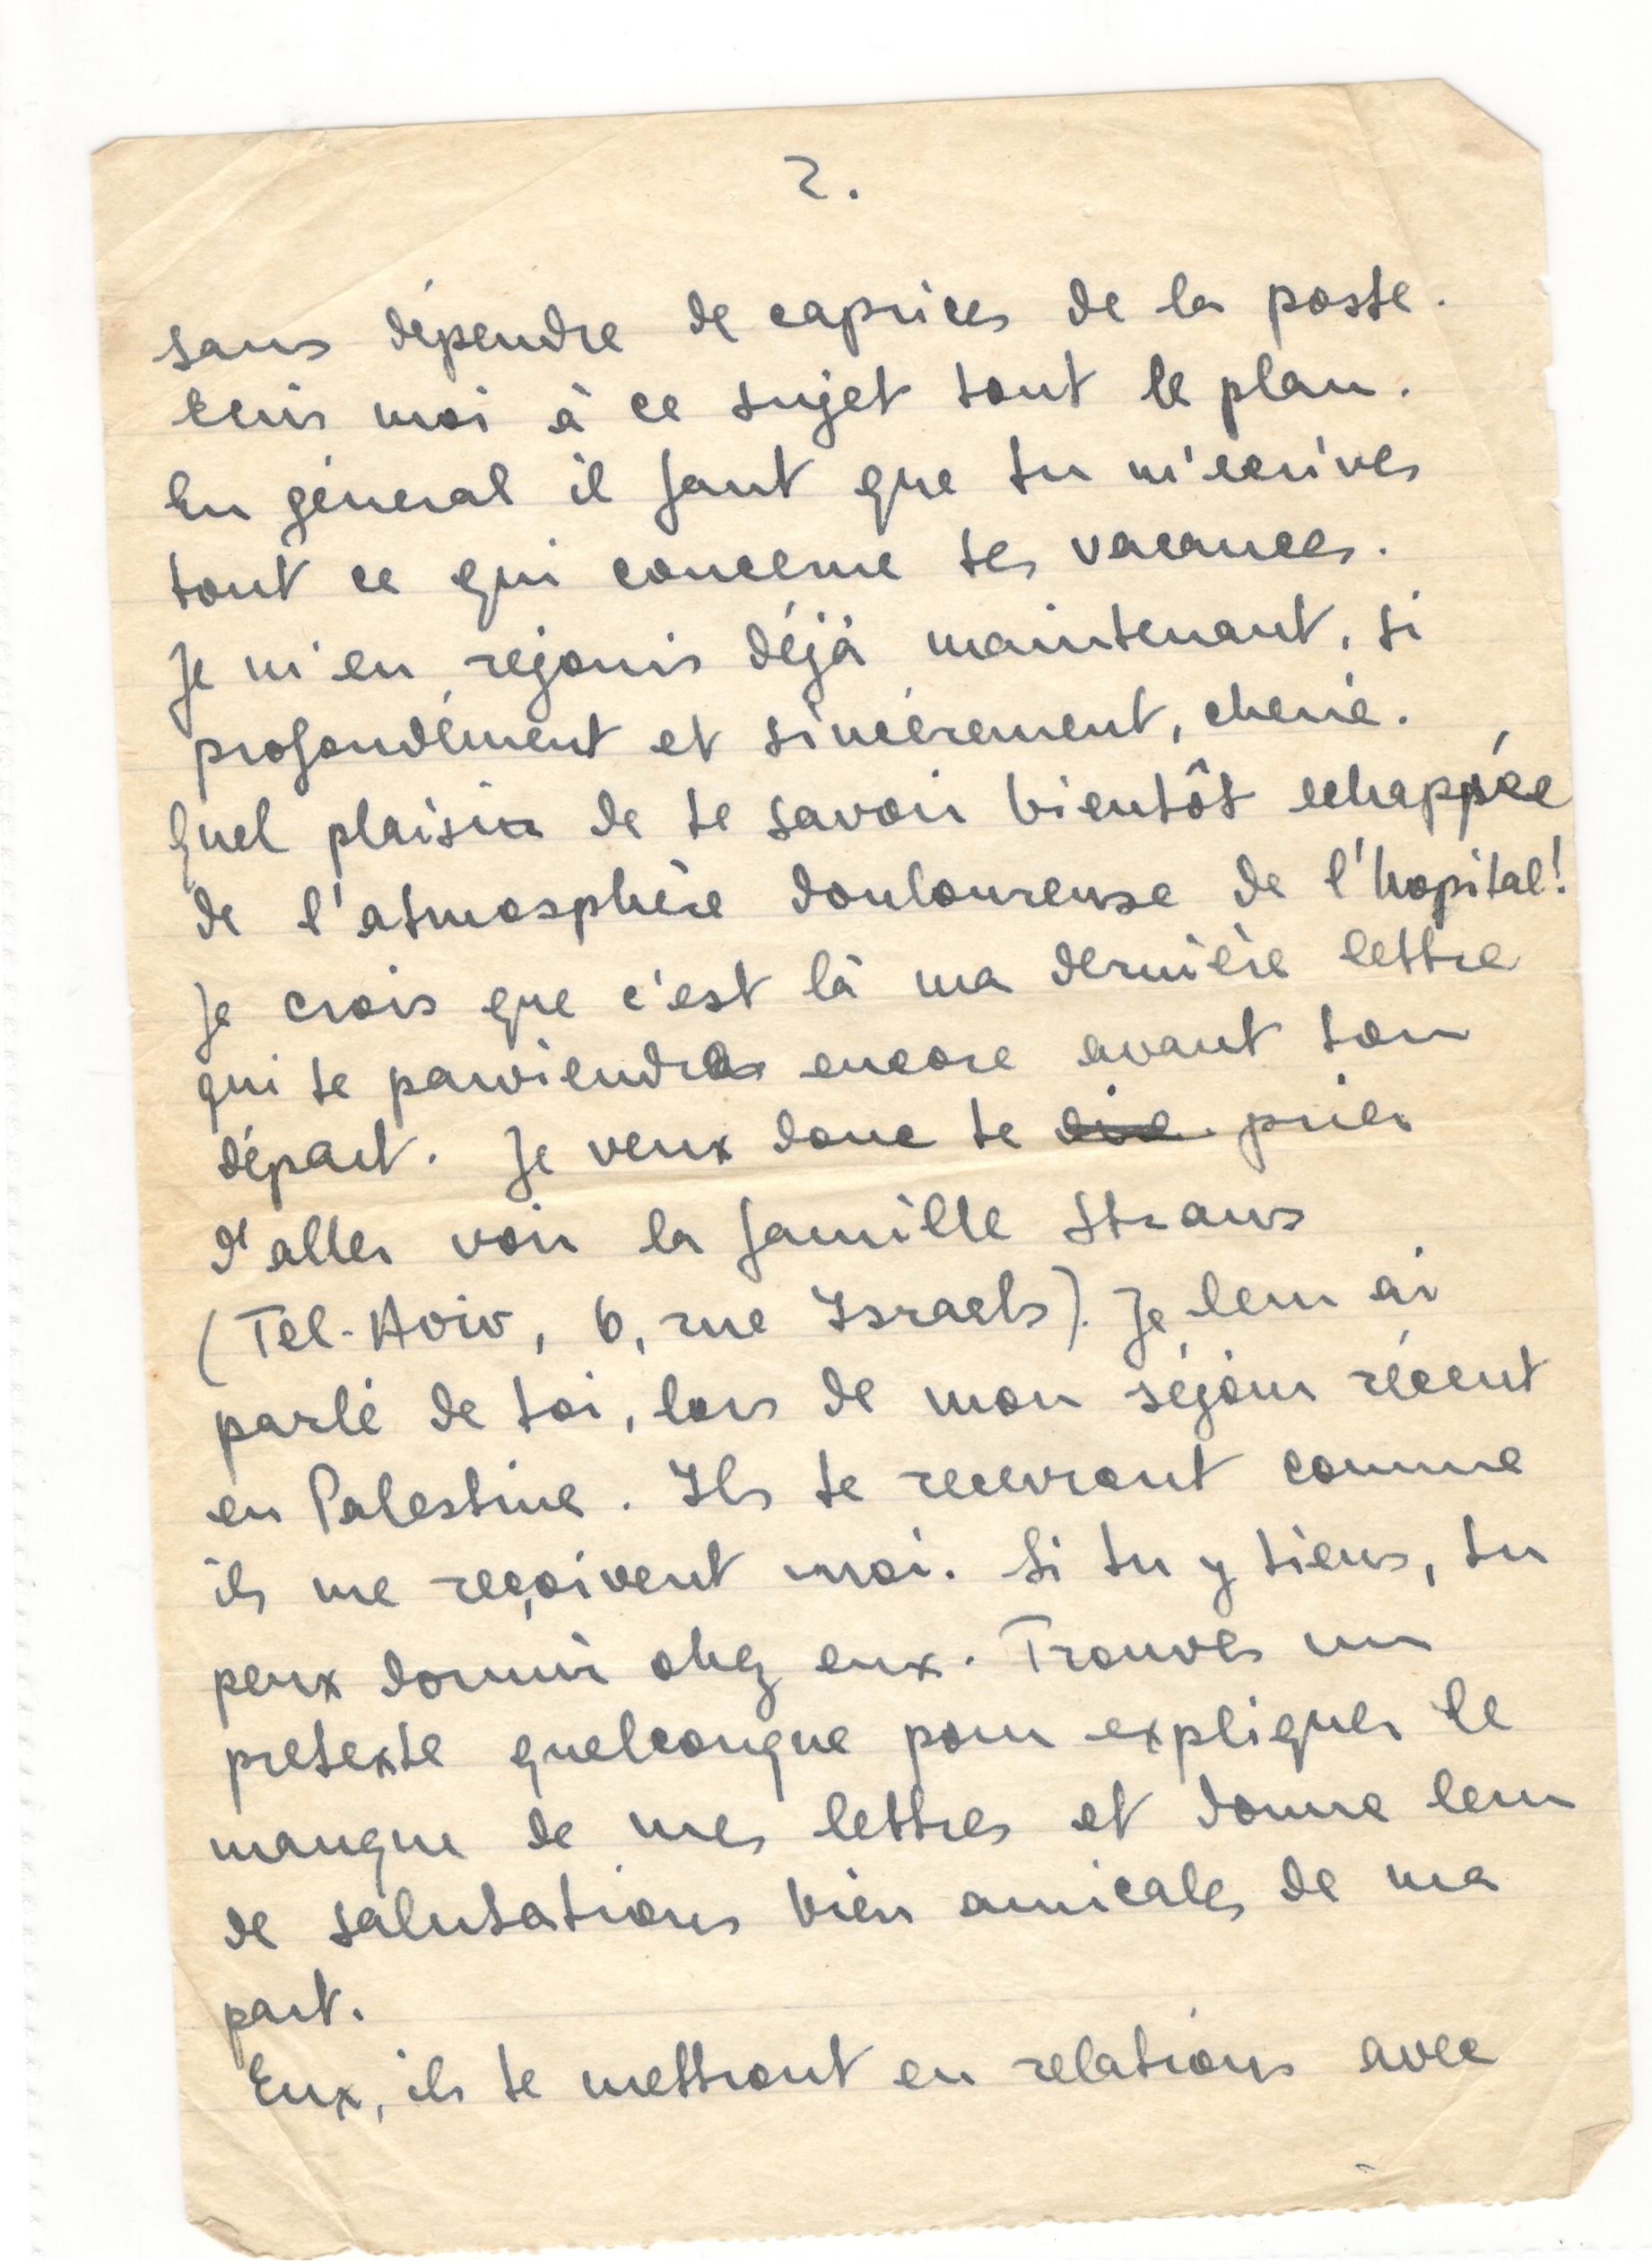 2.
sans dépendre de caprices de la poste.
Ecris moi à ce sujet tout le plan.
En géneral il faut que tu m'ecrives
tout ce qui concerne tes vacances.
Je m'en rejouis déjà maintenant, si
profondément et sincèrement, cherie.
Quel plaisir de te savoir bientôt echappée
de l'atmosphère douloureuse de l'hopital!
Je crois que c'est là ma dernière lettre
qui te parviendra encore avant ton
départ. Je veux donc te dire prier
d'aller voir la famille Straus
(Tel-Aviv, 6, rue Israels). Je leur ai
parlé de toi, lors de mon séjour récent
en Palestine. Ils te recevront comme
ils me reçoivent moi. Si tu y tiens, tu
peux dormir chez eux. Trouves un
pretexte quelconque pour expliquer le
manque de mes lettres et donne leur
de salutations bien amicales de ma
part.
Eux, ils te mettront en relations avec